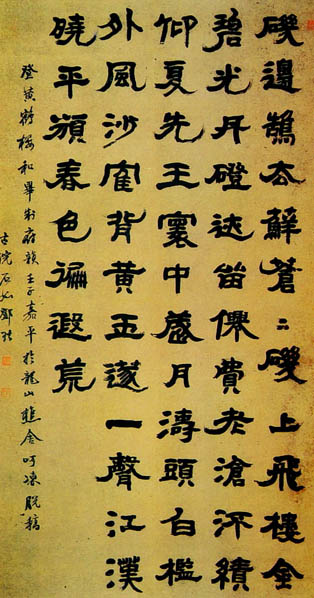 磯邊鵠去蘚蒼〻磯上飛樓金
碧光丹磴迷留僊費老滄績
仰夏先王寰中歲月濤頭白檻
外風沙隺背黃玉篴一聲江漢
曉平春色徧遐荒
登黄鶴樓和畢制府韻壬子嘉平於龍山樵舍呵凍脫稿
古浣石如鄧琰